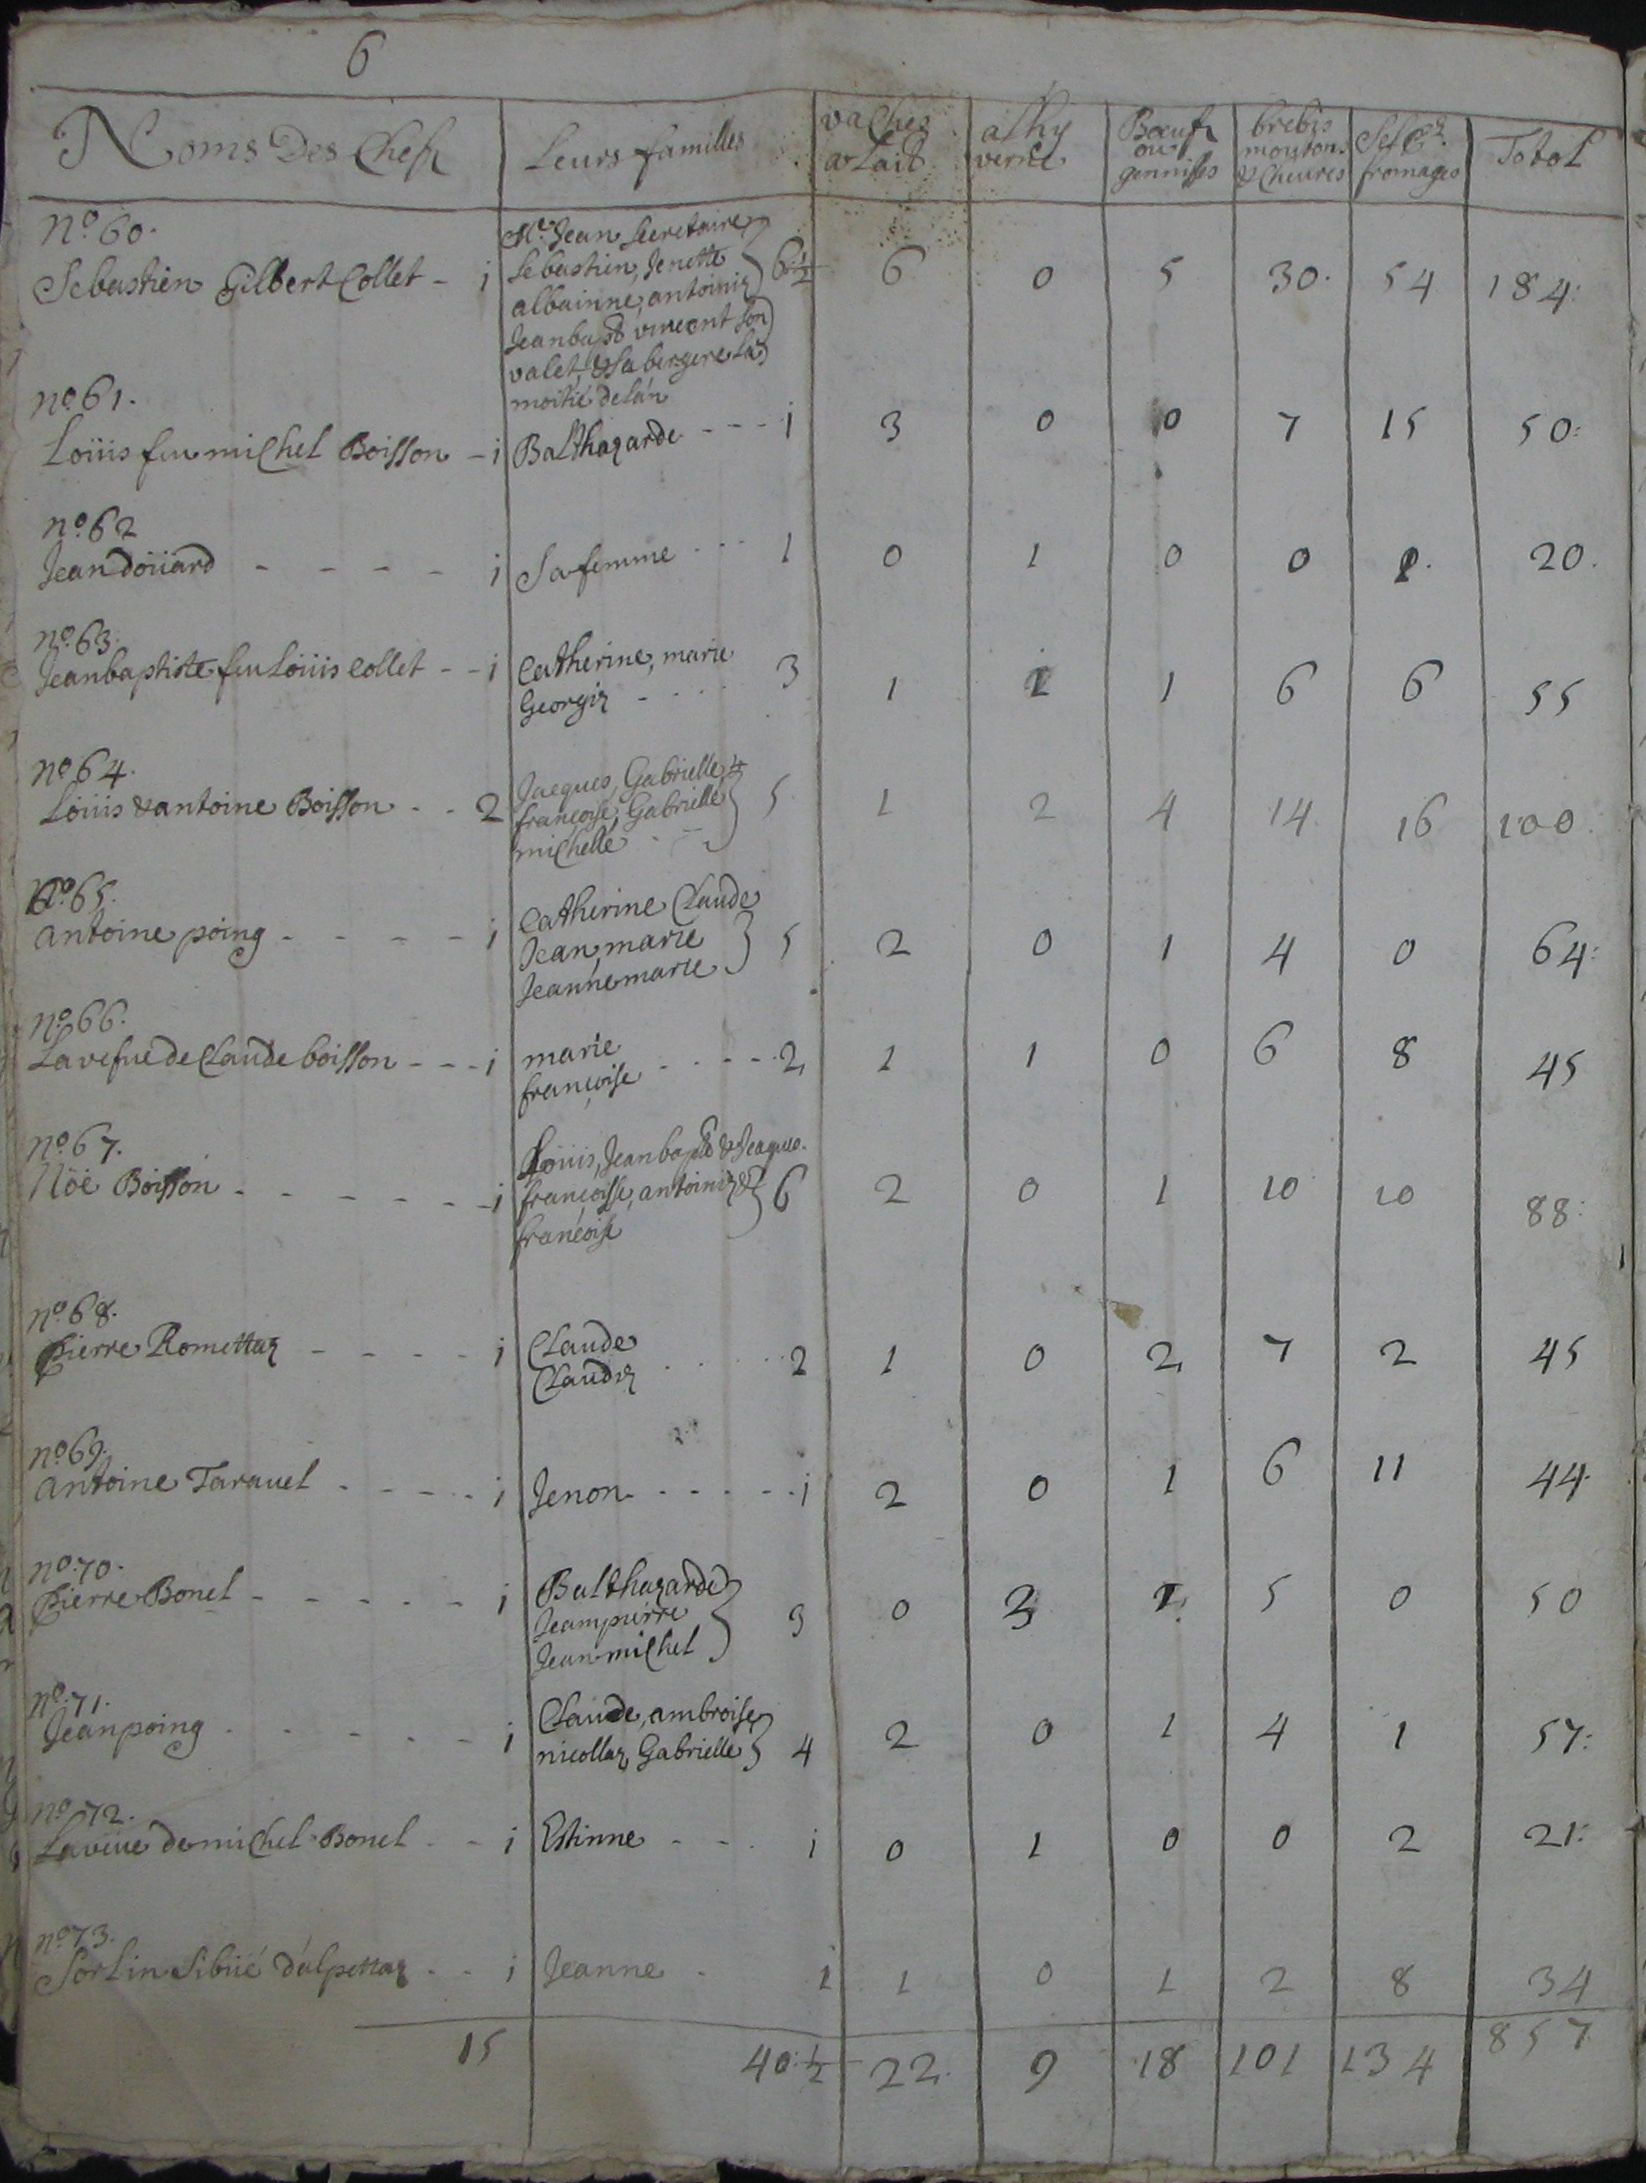 6
Noms Des Chefz Leurs familles vaches a Lait a lhy verne Bœufz ou gennisses brebis moutons & Cheures Sel & fromages Totol
No. 60.
Sebastien Gilbert Collet - 1 Me. Jean Secretaire Sebastien, Jenette albainne, antoiniz Jeanbapt vincent son valet, & sa bergere la moitié de lán 6 1/2 6 0 5 30. 54 184:
no. 61.
Loüis feu michel Boisson - i Balthazarde - - - i 3 0 0 7 15 50:
no. 62
Jean doüard - - - - i Sa femme - - - 1 0 1 0 0 20.
no. 63.
Jeanbaptiste feu Loüis Collet - - i Catherine, marie Georgiz - - - - 3 1 1 1 6 6 55
no. 64.
Loüis & antoine Boisson - - 2 Jacques, Gabrielle françoise, Gabrielle michelle 5 1 2 4 14 16 100
No. 65.
antoine poing - - - - i Catherine Claude Jean, marie Jeanne marie 5 2 0 1 4 0 64:
no. 66.
La vefue de Claude boisson - - - i marie françoise - - - - 2 1 1 0 6 8 45
no. 67.
Nöé Boisson - - - - - - i Loüis, Jeanbapt & Jaque françoise, antoiniz & françoise 6 2 0 1 10 10 88:
no. 68.
Pierre Romettaz - - - - i Claude Claudiz - - - - 2 1 0 2 7 2 45
no. 69.
antoine Tarauel - - - - - i Jenon - - - - - i 2 0 1 6 11 44.
no. 70.
Pierre Bonel - - - - - i Balthazarde Jeanpierre Jean michel 3 0 3 1 5 0 50
no. 71.
Jean poing - - - - - i Claude, ambroise nicollaz, Gabrielle 4 2 0 1 4 1 57:
no. 72.
La veüe de michel Bonel - - i Estinne - - - i 0 1 0 0 2 21:
no. 73.
Sorlin Sibüé dálpettaz - - i Jeanne - 1 1 0 1 2 8 34
15 40: 1/2 22. 9 18 101 134 857